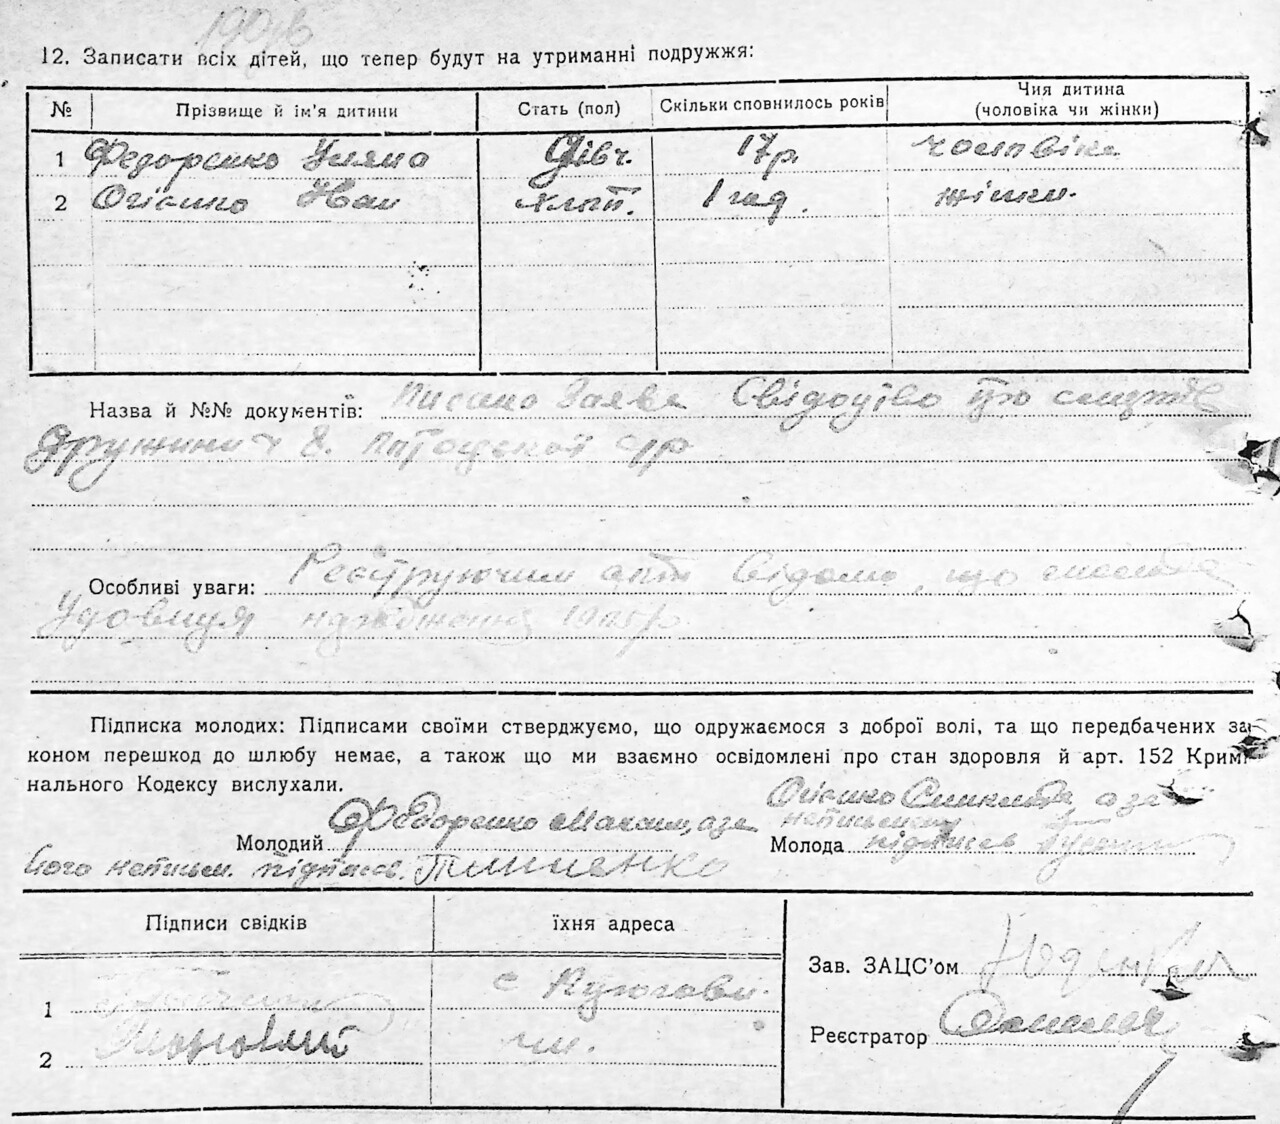 12. Записати всіх дітей, що тепер будут на утриманні подружжя:
№ Прізвище й ім'я дитини Стать (пол) Скільки сповнилось років Чия дитина (чоловіка чи жінки)
1 Федоренко Уляна Дівч. 17 р. чоловіка
2 Огієнко Іван хлоп. 1 год. жінки.
Назва й №№ документів: Писано Заява Свідоцтво про смерть
дружини ч 8.
Особливі уваги: Реєструючим акт Відомо, що
Удовиця народження
Підписка молодих: Підписами своїми стверджуємо, що одружаємося з доброї волі, та що передбачених за
коном перешкод до шлюбу немає, а також що ми взаємно освідомлені про стан здоровля й арт. 152 Кримі
нального Кодексу вислухали.
Молодий Федоренко Максим, а за
його неписьм. підписав. Тимченко
Огієнко а за
неписьмену
Молода підписав
Підписи свідків їхня адреса
Зав. ЗАЦС'ом
1 с
2
Реєстратор